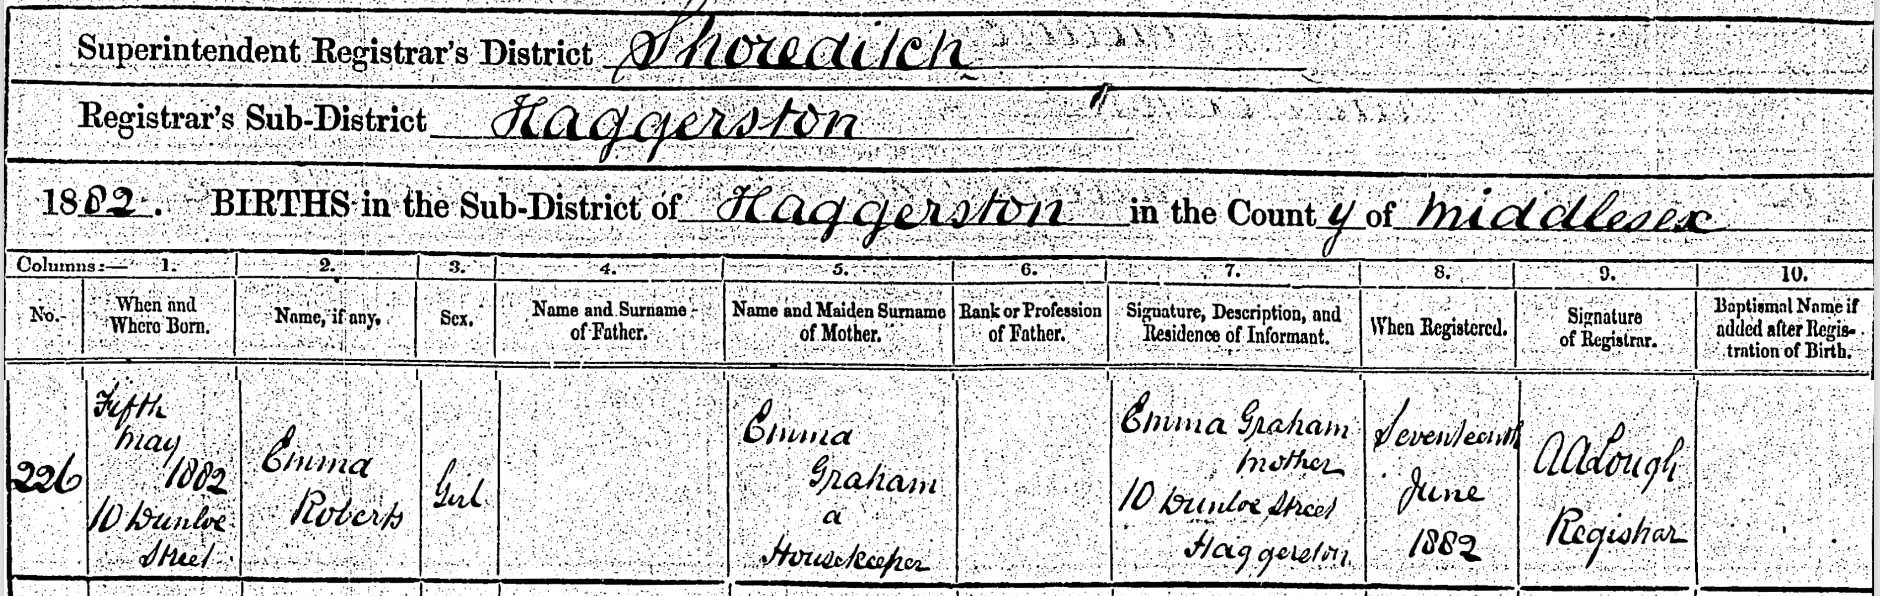 Superintendent Registrar's District Shoreditch
Registrar's Sub-District Haggerston
1882. BIRTHS in the Sub-District of Haggerston in the County of Middlesex
Columns:— 1. 2. 3. 4. 5. 6. 7. 8. 9. 10.
No. When and Where Born. Name, if any. Sex. Name and Surname of Father. Name and Maiden Surname of Mother. Rank or Profession of Father. Signature, Description, and Residence of Informant. When Registered. Signature of Registrar. Baptismal Name if added after Registration of Birth.
226
Fifth
May
1882
10 Dunloe
Street
Emma
Roberts
Girl
Emma
Graham
a
Housekeeper
Emma Graham
Mother
10 Dunloe Street
Haggerston
Seventeenth
June
1882
A A Lough
Registrar